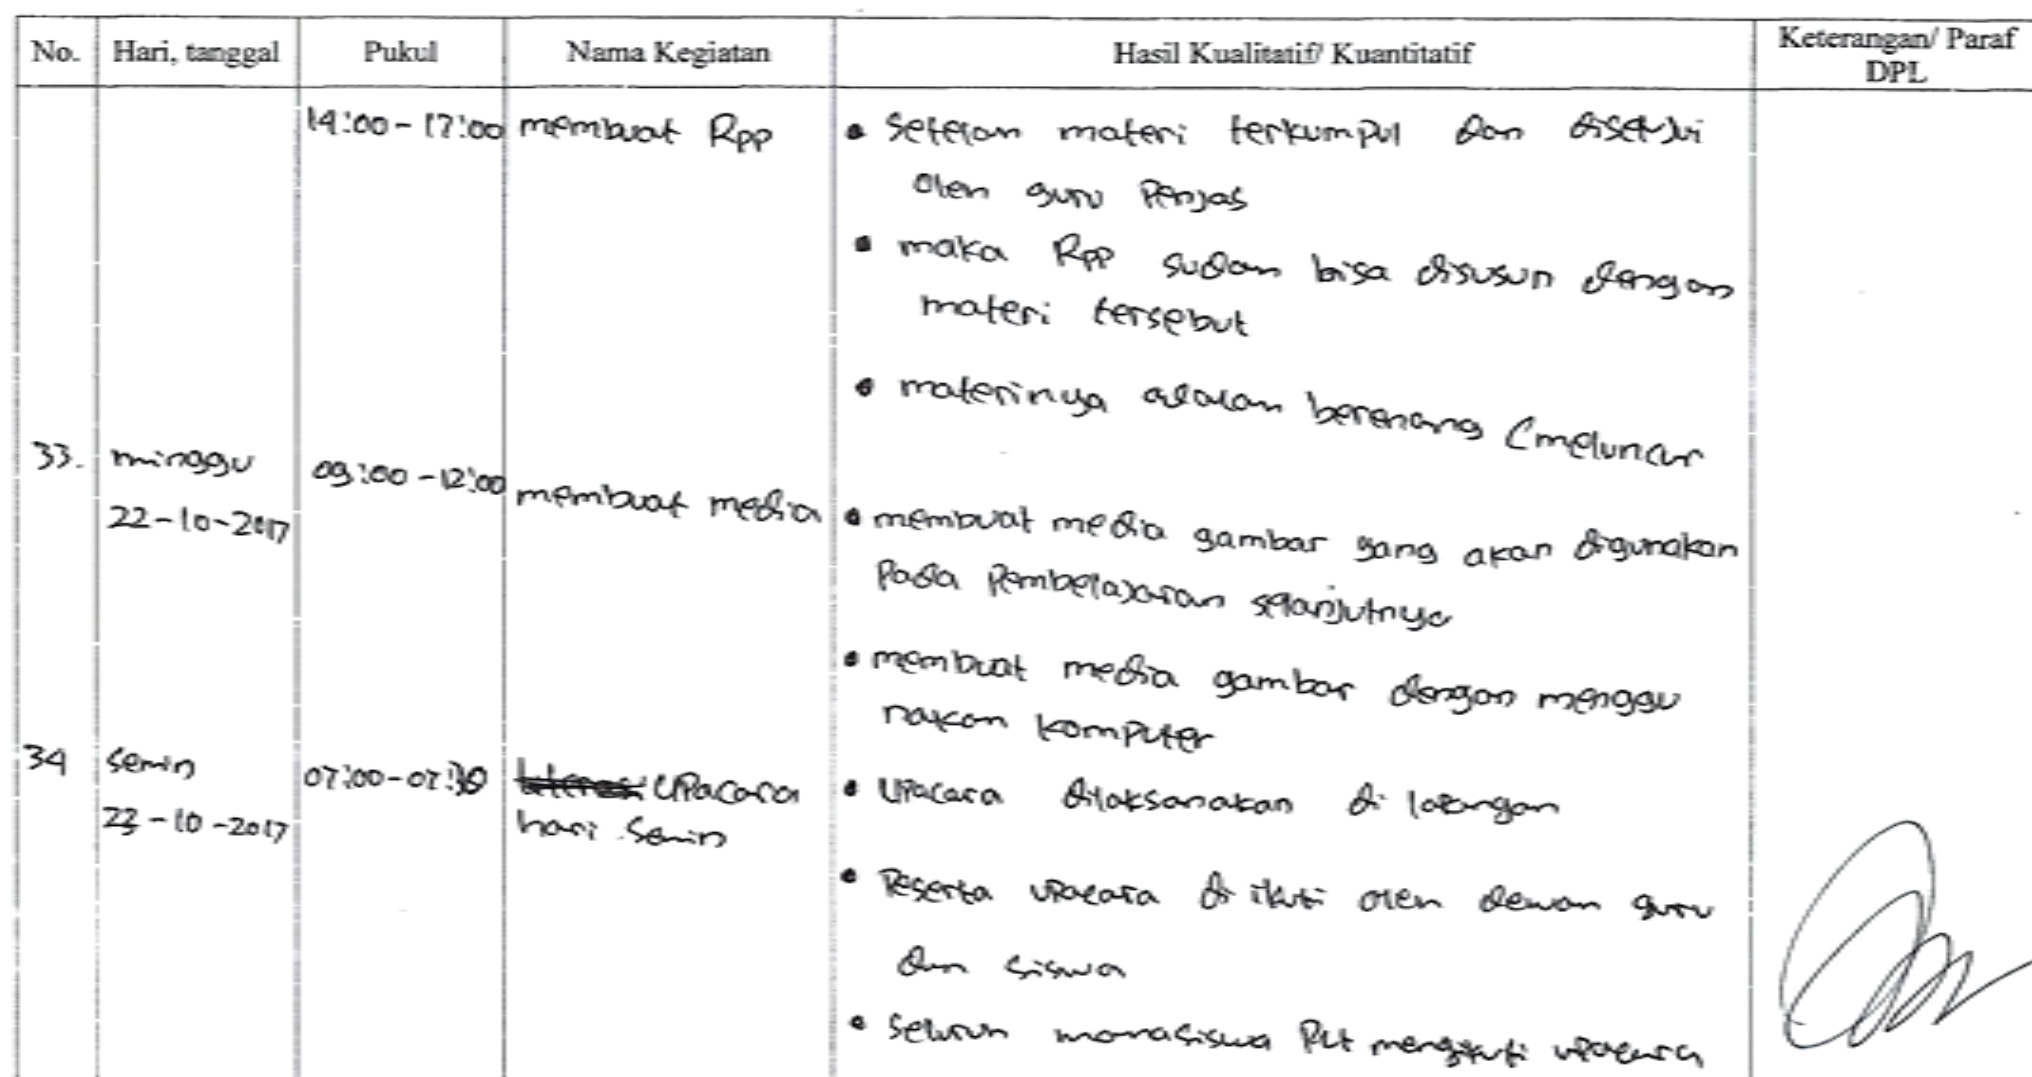 No. Hari, tanggal Pukul Nama Kegiatan Hasil Kualitatif/ Kuantitatif Keterangan/ Paraf
DPL
14:00-17:00 membuat Rpp • setelah materi terkumpul dan disetujui
oleh guru Penjas
• maka Rpp sudah bisa disusun dengan
materi tersebut
• materinya adalah berenang (meluncur
33. minggu 09:00-12:00 membuat media
22-10-2017 • membuat media gambar yang akan digunakan
Pada Pembelajaran selanjutnya
• membuat media gambar dengan menggu
nakan komputer
34 Senin 07:00-07:30 Upacara • Upacara dilaksanakan di lapangan
23-10-2017 hari Senin
• Peserta upacara di ikuti oleh dewan guru
dan siswa
• seluruh mahasiswa PLT mengikuti upacara